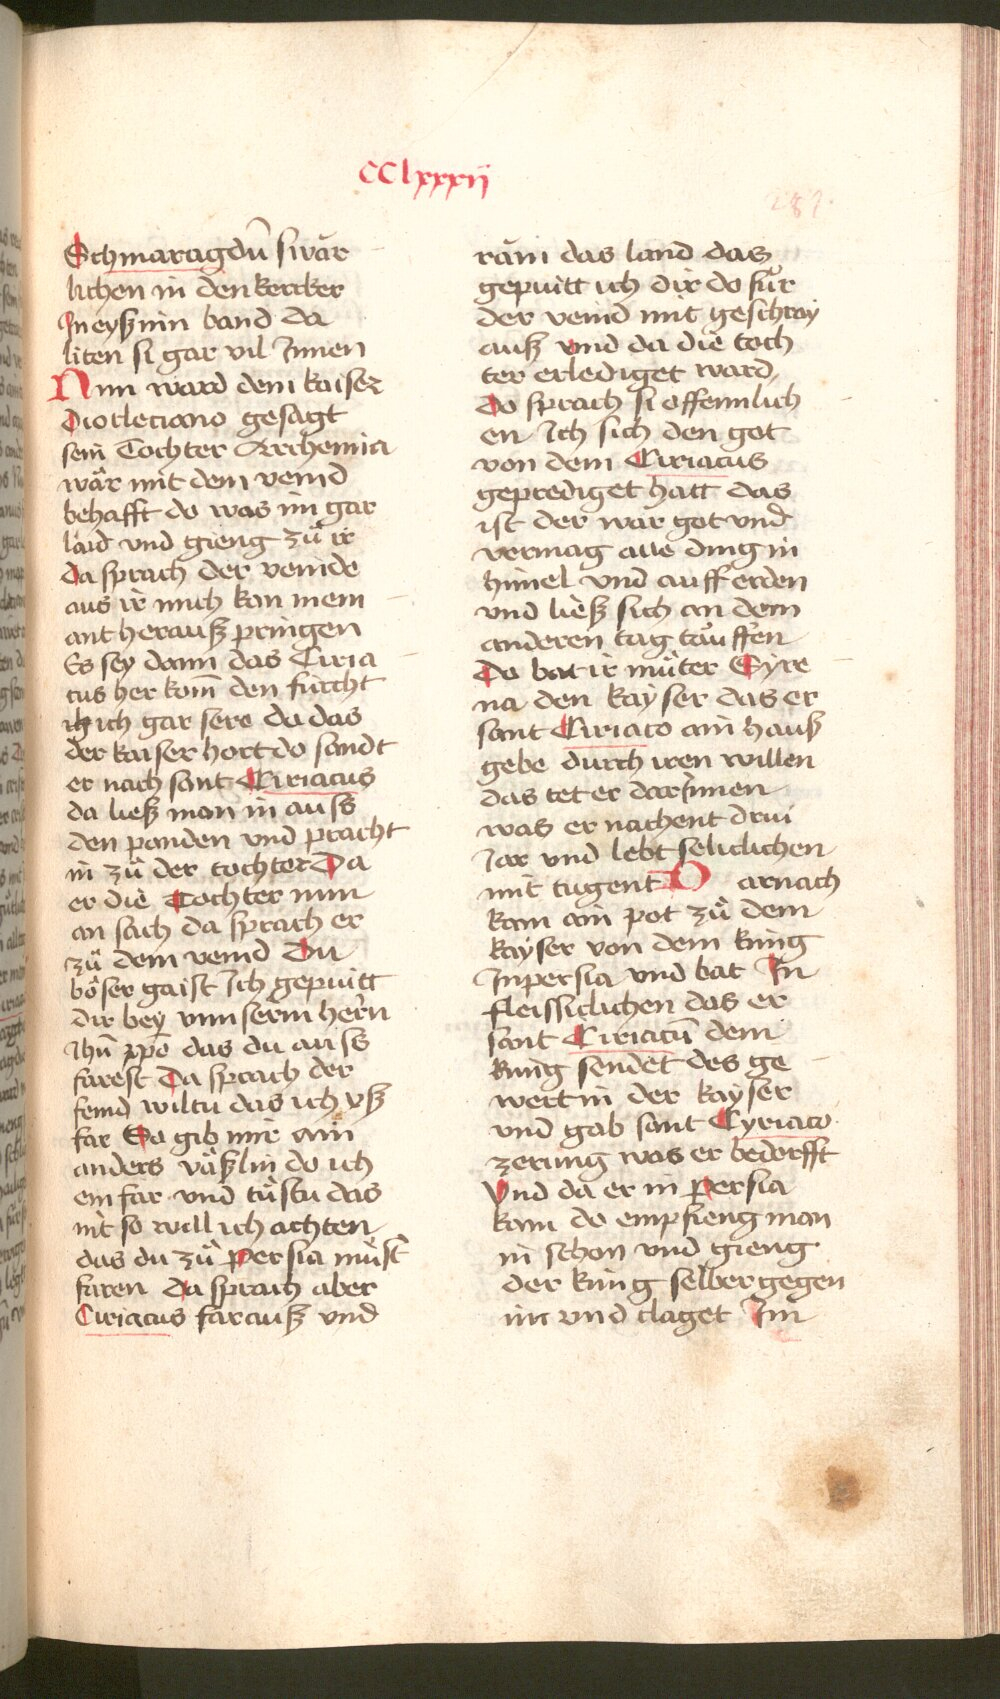 CClxxxij
282.
Schmaragdū swär
lichen in den kercker
In eysznin band da
liten si gar vil Innen
Nun ward dem kaiser
Diocleciano gesagt
sein Tochter Archemia
wär mit dem veind
behafft do was im gar
laid vnd gieng zů ir
Da sprach der veinde
aus ir mich kan niem
ant herausz pringen
Es sey dann das Ciria
cus her kom̄ den fürcht
ich gar sere da das
der kaiser hort do sandt
er nach sant Ciriacus
da liesz man in auss
den panden vnd pracht
in zů der tochter Da
er die Tochter nun
an sach da sprach er
zů dem veind Du
böser gaist Ich gepuitt
dir bey vnnserm hern̄
Ihū xp̄o das du auss
farest Da sprach der
feind wiltu das ich vsz
far So gib mir ain
anders väszlin do ich
ein far vnd tůstu das
nit so will ich achten
das du zů Persia můst
faren Da sprach aber
Ciriacus far ausz vnd
räm das land das
gepuitt ich dir do fůr
der veind mit geschray
ausz vnd da die toch
ter erlediget ward
do sprach si offennlich
en Ich sich den got
von dem Ciriacus
geprediget hatt das
ist der war got vnd
vermag alle ding in
himel vnd auff erden
vnd liesz sich an dem
anderen tag tauffen
Do bat ir můter Syre
na den kayser das er
sant Ciriaco ain hausz
gebe durch iren willen
das tet er dar Innen
was er nachent drui
Jar vnd lebt seliclichen
mit tugent Darnach
kam ain pot zů dem
kayser von dem kung
In persia vnd bat In
fleissiclichen das er
sant Ciriacū dem
kung sendet des ge
wert in der kayser
vnd gab sant Cyriaco
zerung was er bedorfft
Vnd da er in Persia
kam do empfieng man
in schon vnd gieng
der kung selber gegen
im vnd claget Im